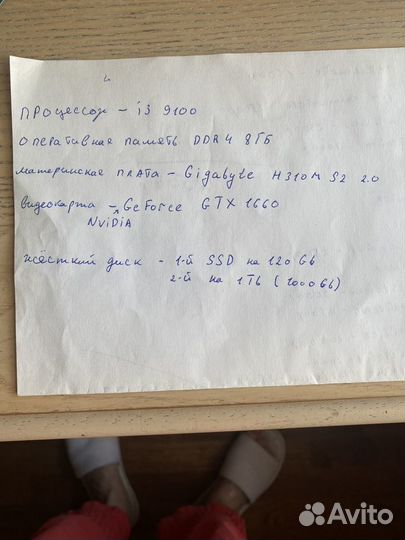 ПРОЦЕССОР - i3 9100
ОПЕРАТИВНАЯ ПАМЯТЬ DDR4 8ГБ
МАТЕРИНСКАЯ ПЛАТА - Gigabyte H310M S2 2.0
ВИДЕОКАРТА - GeForce GTX 1660
NVIDIA
ЖЁСТКИЙ ДИСК - 1-й SSD на 120 Gb
2-й на 1Tb (1000Gb)
Avito